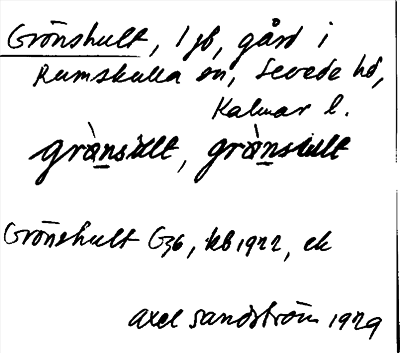 Grönshult, 1 jb, gård i
Rumskulla sn, Sevede hd,
Kalmar l.
grònsult, grònshult
Grönshult G36, kb 1922, ek
Axel Sandström 1929